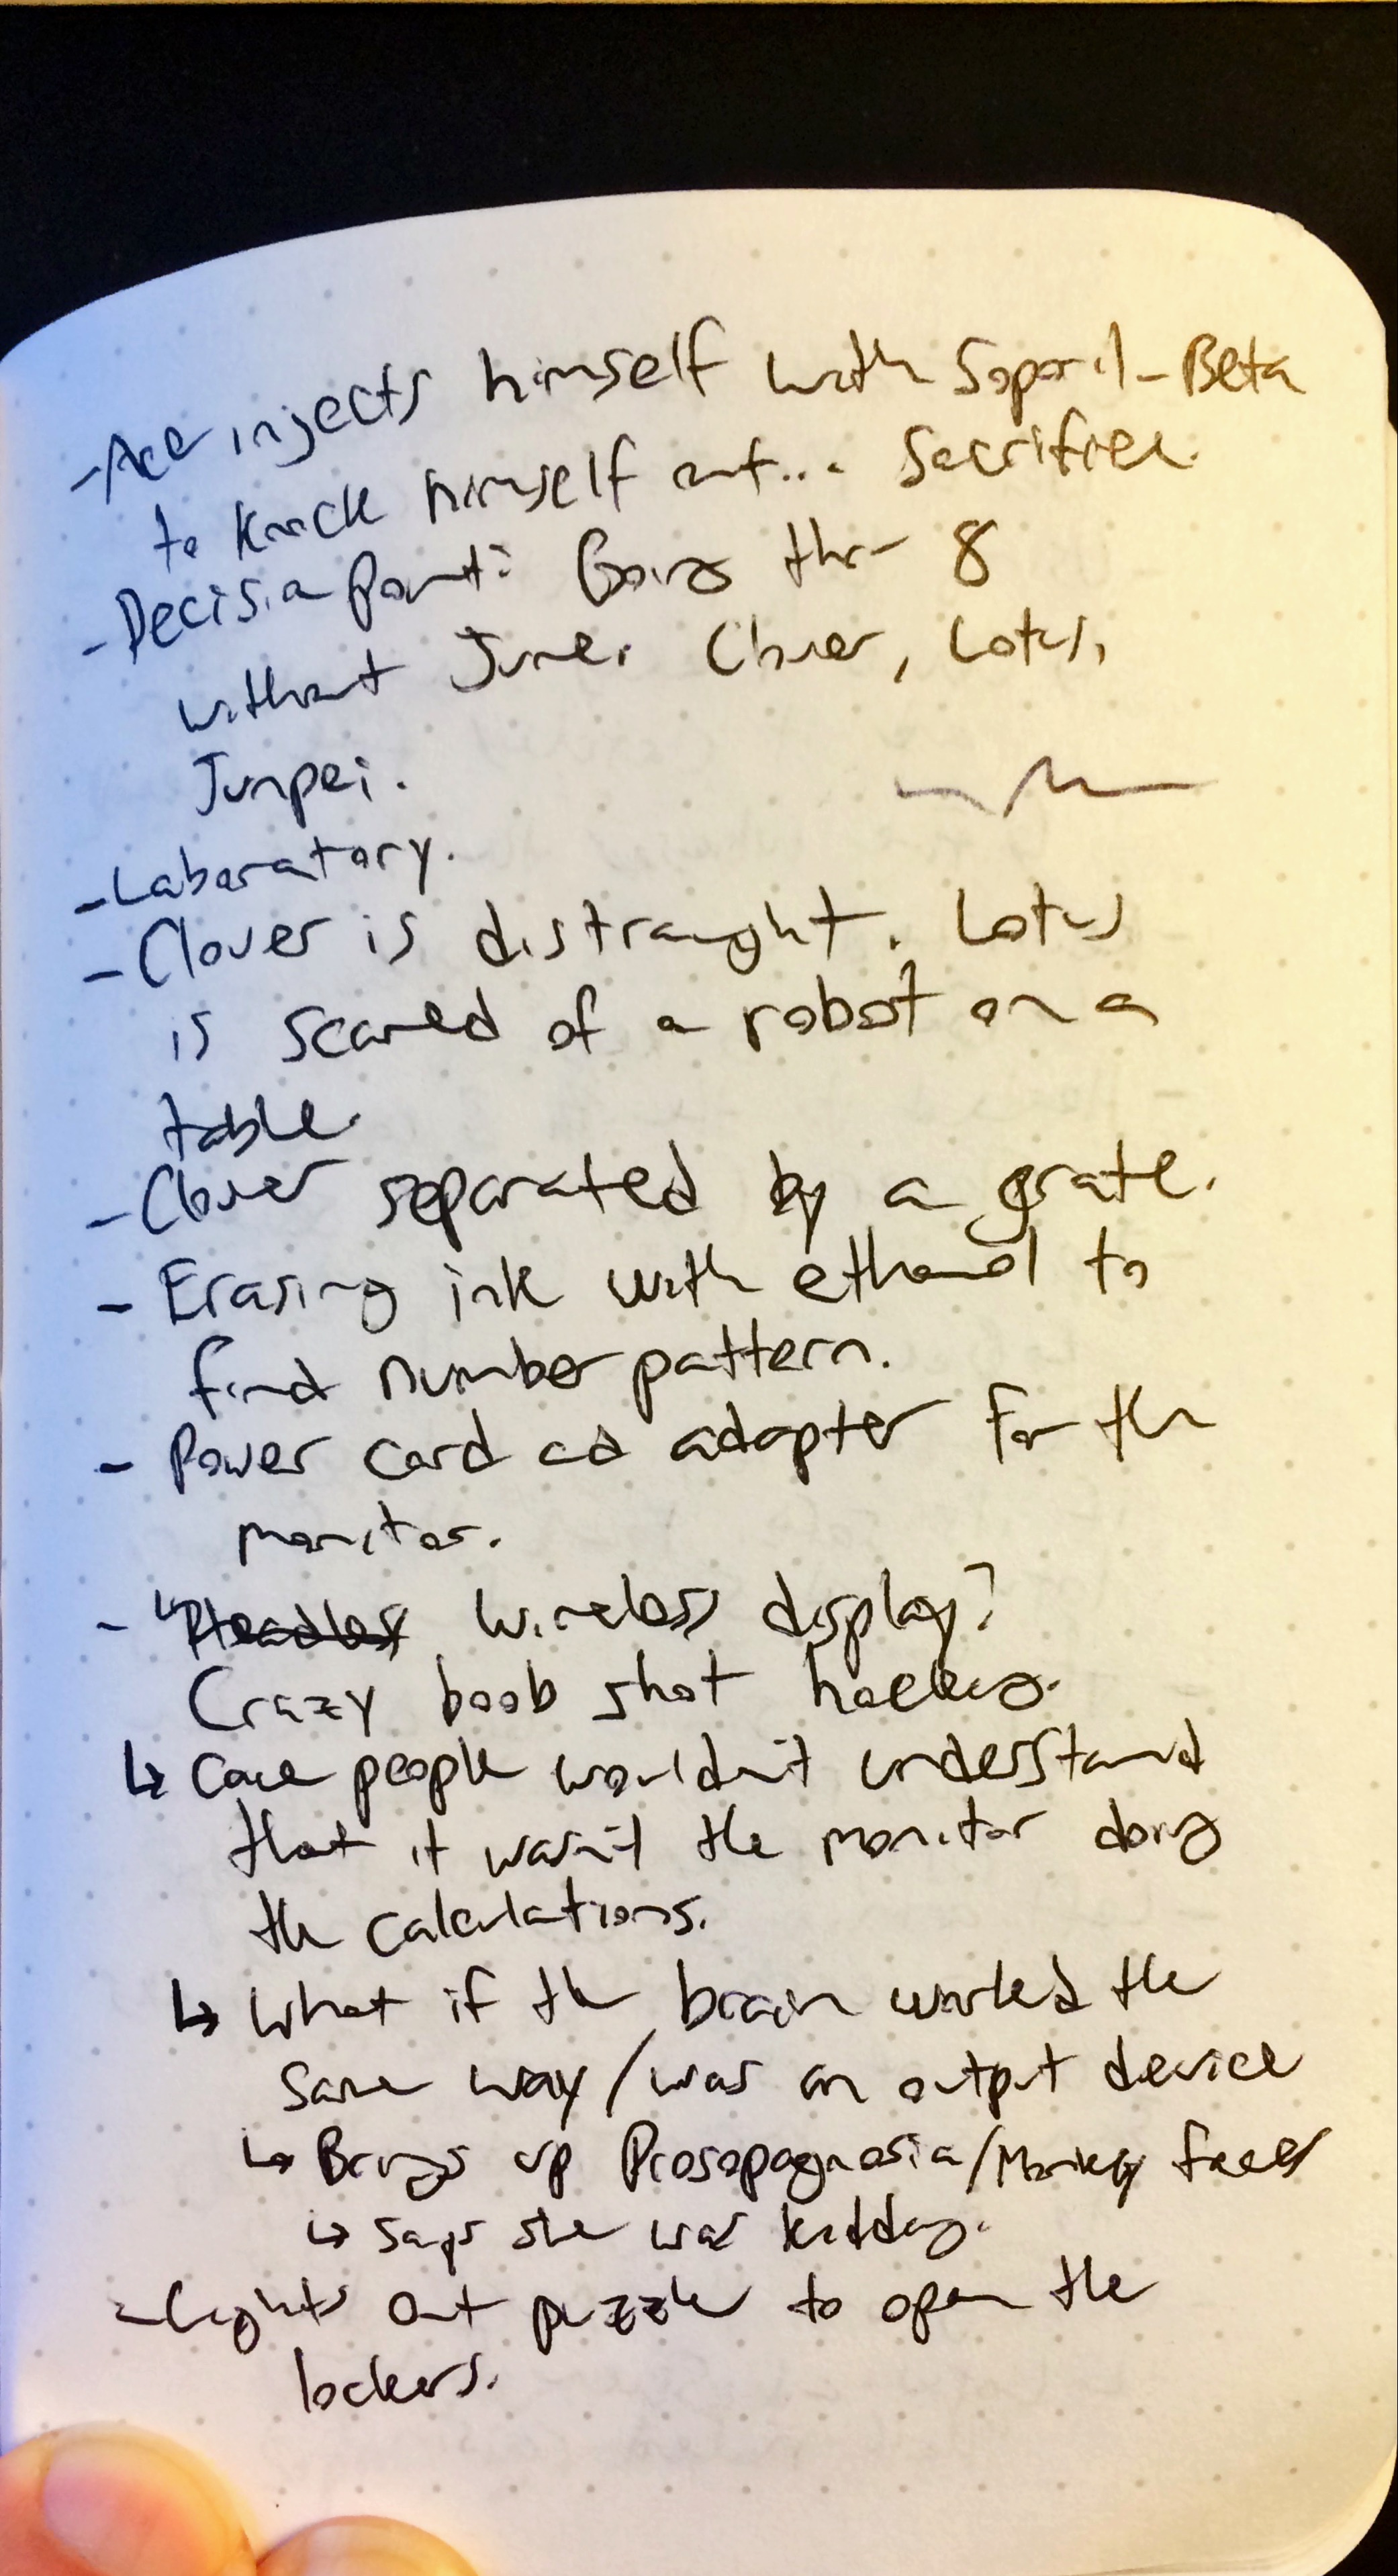 - Ace injects himself with Soporil-Beta
to knock himself out... Sacrifice.
- Decision Point: Going thru 8
without June. Clover, Lotus,
Junpei.
- Laboratory.
- Clover is distraught. Lotus
is scared of a robot on a
table.
- Clover separated by a grate.
- Erasing ink with ethanol to
find number pattern.
- Power cord and adapter for the
monitor.
- Headless Wireless display?
Crazy boob shot
↳ Cave people wouldn't understand
that it wasn't the monitor doing
the calculations.
↳ What if the brain worked the
same way/was an output device
↳ Brings up Prosopagnosia/Monkey faces
↳ says she was kidding.
- Lights Out puzzle to open the
lockers.